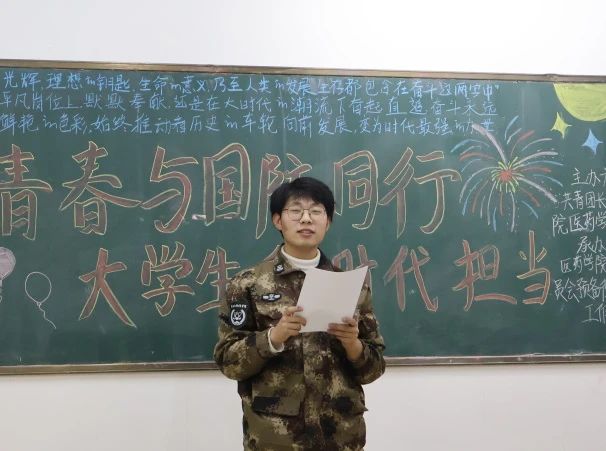 光辉,理想的钥匙,生命的意义,乃至人生的发展,生存都包含在奋斗这两字中
平凡岗位上,默默奉献,还是在大时代的潮流下奋起直追,奋斗永远
鲜艳的色彩,始终推动着历史的车轮向前发展,变为时代最强的
青春与国防同行
大学生 时代担当
主办
共青团
院医药学
承办
医药学院
员会预备
工作